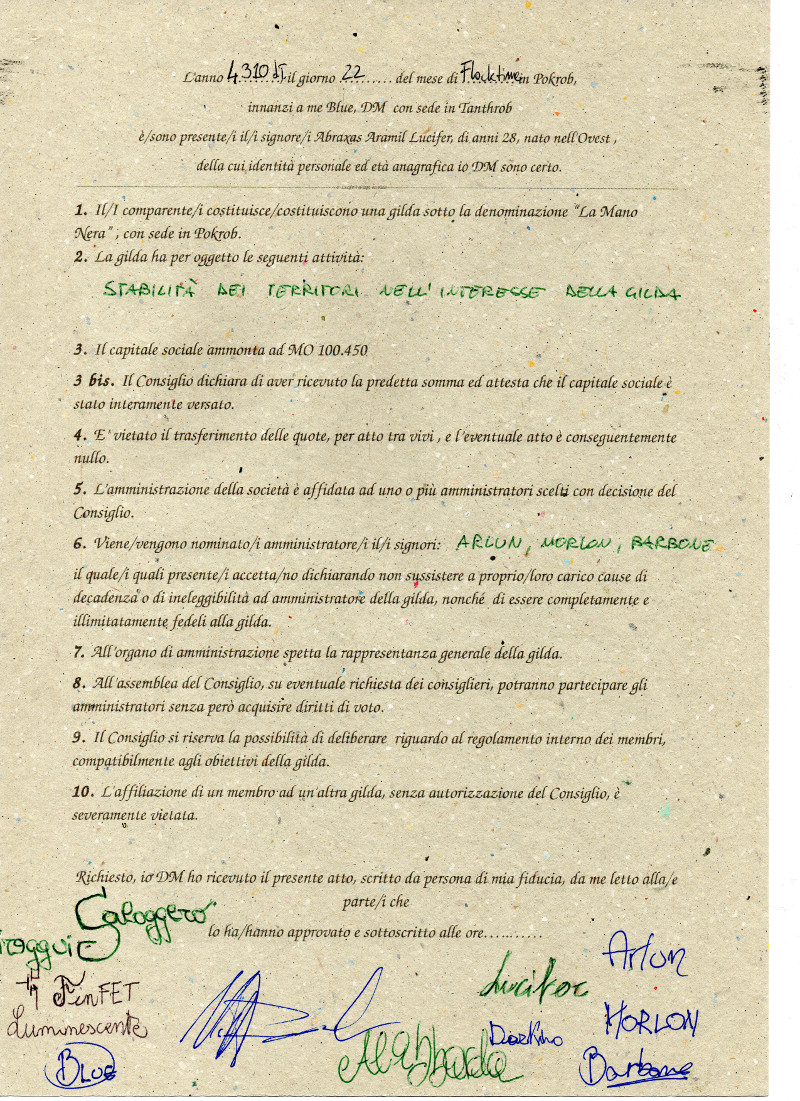 L'anno 4310 dT il giorno 22 ......... del mese di Flocktime in Pokrob,
innanzi a me Blue, DM con sede in Tanthrob
è/sono presente/i il/i signore/i Abraxas Aramil Lucifer, di anni 28, nato nell'Ovest ,
della cui identità personale ed età anagrafica io DM sono certo.
1. Il/I comparente/i costituisce/costituiscono una gilda sotto la denominazione "La Mano
Nera" , con sede in Pokrob.
2. La gilda ha per oggetto le seguenti attività:
STABILITÀ DEI TERRITORI NELL'INTERESSE DELLA GILDA
3. Il capitale sociale ammonta ad MO 100.450
3 bis. Il Consiglio dichiara di aver ricevuto la predetta somma ed attesta che il capitale sociale è
stato interamente versato.
4. E' vietato il trasferimento delle quote, per atto tra vivi , e l'eventuale atto è conseguentemente
nullo.
5. L'amministrazione della società è affidata ad uno o più amministratori scelti con decisione del
Consiglio.
6. Viene/vengono nominato/i amministratore/i il/i signori: ARLUN, MORLON, BARBONE
il quale/i quali presente/i accetta/no dichiarando non sussistere a proprio/loro carico cause di
decadenza o di ineleggibilità ad amministratore della gilda, nonché di essere completamente e
illimitatamente fedeli alla gilda.
7. All'organo di amministrazione spetta la rappresentanza generale della gilda.
8. All'assemblea del Consiglio, su eventuale richiesta dei consiglieri, potranno partecipare gli
amministratori senza però acquisire diritti di voto.
9. Il Consiglio si riserva la possibilità di deliberare riguardo al regolamento interno dei membri,
compatibilmente agli obiettivi della gilda.
10. L'affiliazione di un membro ad un'altra gilda, senza autorizzazione del Consiglio, è
severamente vietata.
Richiesto, io DM ho ricevuto il presente atto, scritto da persona di mia fiducia, da me letto alla/e
parte/i che
lo ha/hanno approvato e sottoscritto alle ore..........
Caloggero
Arlun
FinFET
Lucifer
Luminescente
MORLON
DarKino
BLUE
Alabbarda
Barbone